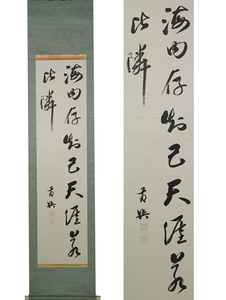 海内存知己天涯若
比隣